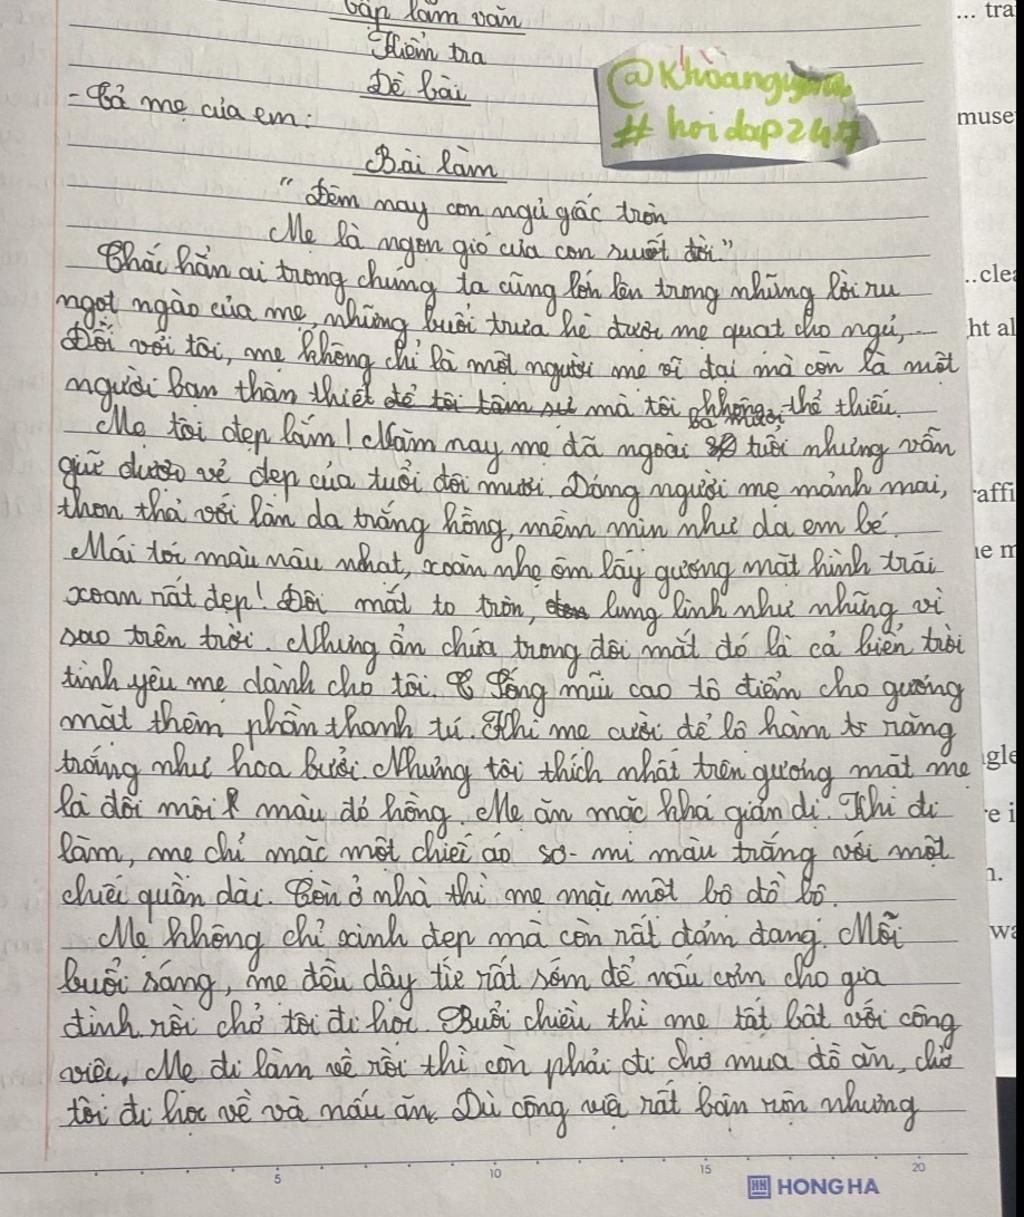 Tập làm văn
Kiểm tra
Đề bài
- Tả mẹ của em:
@Khoanguyen
# hoidap247
Bài làm
" Đêm nay con ngủ giấc tròn
Mẹ là ngọn gió của con suốt đời."
Chắc hẳn ai trong chúng ta cũng lớn lên trong những lời ru
ngọt ngào của mẹ, những buổi trưa hè được mẹ quạt cho ngủ,...
Đối với tôi, mẹ không chỉ là một người mẹ vĩ đại mà còn là một
người bạn thân thiết để tôi tâm sự mà tôi không thể thiếu.
Mẹ tôi đẹp lắm! Năm nay mẹ đã ngoài ba mươi tuổi nhưng vẫn
giữ được vẻ đẹp của tuổi đôi mươi. Dáng người mẹ mảnh mai,
thon thả với làn da trắng hồng, mềm mịn như da em bé.
Mái tóc màu nâu nhạt, xoăn nhẹ ôm lấy gương mặt hình trái
xoan rất đẹp! Đôi mắt to tròn, lung linh như những vì
sao trên trời. Nhưng ẩn chứa trong đôi mắt đó là cả biển trời
tình yêu mẹ dành cho tôi. Sống mũi cao tô điểm cho gương
mặt thêm phần thanh tú. Khi mẹ cười để lộ hàm răng
trắng như hoa bưởi. Nhưng tôi thích nhất trên gương mặt mẹ
là đôi môi màu đỏ hồng. Mẹ ăn mặc khá giản dị. Khi đi
làm, mẹ chỉ mặc một chiếc áo sơ-mi màu trắng với một
chiếc quần dài. Còn ở nhà thì mẹ mặc một bộ đồ bộ.
Mẹ không chỉ xinh đẹp mà còn rất đảm đang. Mỗi
buổi sáng, mẹ đều dậy từ rất sớm để nấu cơm cho gia
đình rồi chở tôi đi học. Buổi chiều thì mẹ tất bật với công
việc, Mẹ đi làm về rồi thì còn phải đi chợ mua đồ ăn, chở
tôi đi học về và nấu ăn. Dù công việc rất bận rộn nhưng
5 10 15 20
HH HONG HA
... tra
muse
...clea
ht al
raffi
ne m
gle
e i
n.
wa